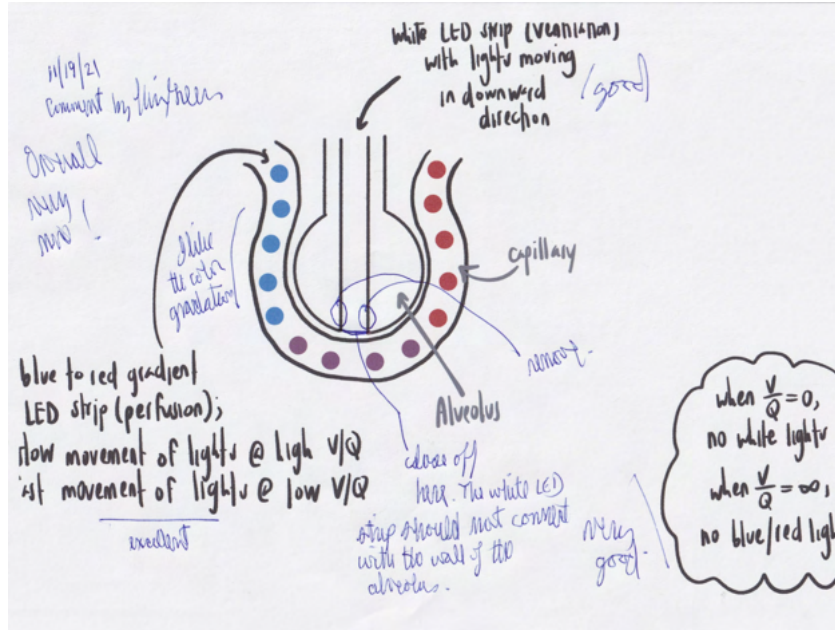 white LED strip (ventilation)
with lights moving
in downward
direction
good
11/19/21
Comment by
Overall
very
I like
the color
gradation
capillary
remove.
Alveolus
blue to red gradient
LED strip (perfusion);
slow movement of lights @ high V/Q
fast movement of lights @ low V/Q
excellent
close off
here. The white LED
strip should not connect
with the wall of the
alveolus.
very
good.
when V/Q = 0,
no white lights
when V/Q = ∞,
no blue/red ligh